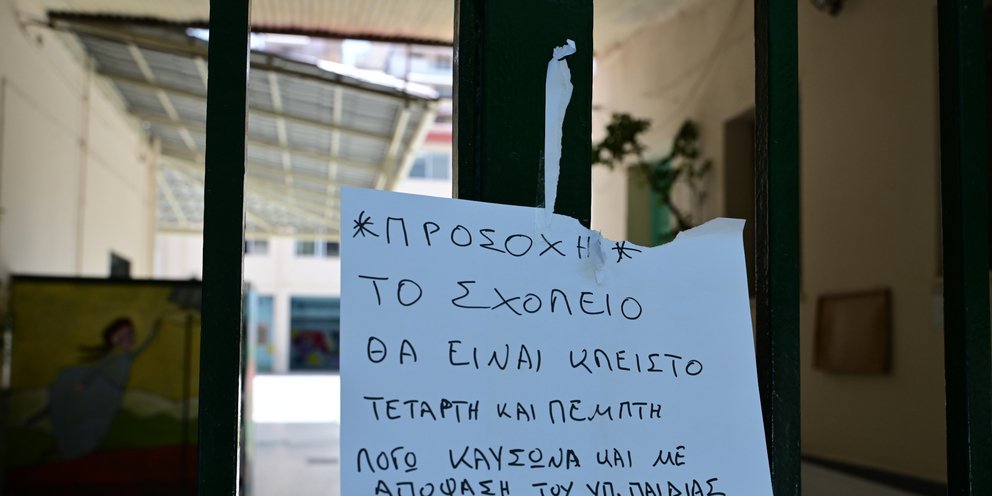 *ΠΡΟΣΟΧΗ*
ΤΟ ΣΧΟΛΕΙΟ
ΘΑ ΕΙΝΑΙ ΚΛΕΙΣΤΟ
ΤΕΤΑΡΤΗ ΚΑΙ ΠΕΜΠΤΗ
ΛΟΓΩ ΚΑΥΣΩΝΑ ΚΑΙ ΜΕ
ΑΠΟΦΑΣΗ ΤΟΥ ΥΠ. ΠΑΙΔΙΑΣ